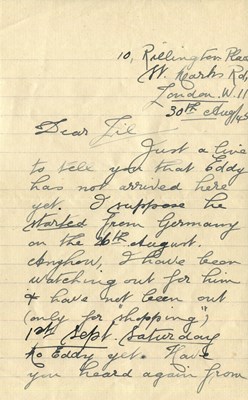 10, Rillington Place
St. Marks Rd.
London. W.11
30th Aug/45
Dear Lil
Just a line
to tell you that Eddy
has not arrived here
yet. I suppose he
started from Germany
on the 26th August.
Anyhow, I have been
watching out for him
& have not been out
(only for "shopping")
1st Sept. Saturday
to Eddy yet. Have
you heard again from